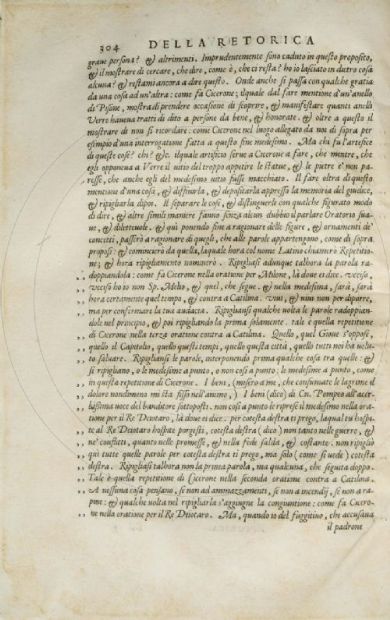 304 DELLA RETORICA
graue persona? & altrimenti. Imprudentemente sono caduto in questo proposito,
& il mostrare di cercare, che dire, come è, che ci resta? ho io lasciato in dietro cosa
alcuna? & restami ancora a dire questo. Onde anche si passa con qualche gratia
da una cosa ad un'altra: come fa Cicerone; ilquale dal fare mentione d'un'anello
di Pisone, mostra di prendere occasione di scoprire, & manifestare quanti anelli
Verre haueua tratti di dito a persone da bene, & honorate. & oltre a questo il
mostrare di non si ricordare: come Cicerone nel luogo allegato da noi di sopra per
esempio d'una interrogatione fatta a questo fine medesimo. Ma chi fu l'artefice
di queste cose? chi? &c. ilquale artificio serue a Cicerone a fare, che mentre, che
egli opponeua a Verre il uitio del troppo appetire le statue, & le pietre e' non pa-
resse, che anche egli del medesimo uitio fusse macchiato. Il fare oltra di questo
mentione d'una cosa, & diffinirla, & depositarla appresso la memoria del giudice,
& ripigliarla dipoi. Il separare le cose, & distinguerle con qualche figurato modo
di dire, & altre simili maniere fanno senza alcun dubbio il parlare Oratorio soa-
ue, & diletteuole. & qui ponendo fine a ragionare delle figure, & ornamenti de'
concetti, passerò a ragionar di quegli, che alle parole appartengono, come di sopra
proposi: & comincerò da quella, laquale hora col nome Latino chiamerò Repetitio-
ne, & hora ripigliamento nomerò. Ripigliasi adunque talhora la parola ra-
,, doppiandola: come fa Cicerone nella oratione per Milone, là doue ei dice. uccisi,
,, uccisi ho io non Sp. Melio, & quel, che segue. & nella medesima, sarà, sarà
,, hora certamente quel tempo, & contra a Catilina. uiui, & uiui non per diporre,
,, ma per confermare la tua audacia. Ripigliansi qualche uolta le parole radoppian-
dole nel principio, & poi ripigliando la prima solamente. tale è quella repetitione
,, di Cicerone nella terza oratione contra a Catilina. Quello, quel Gioue s'oppose,
,, quello il Capitolio, quello questi tempi, quello questa città, quello tutti noi ha uolu-
,, to saluare. Ripigliansi le parole, interponendo prima qualche cosa tra quelle: &
si ripigliano, o le medesime a punto, o non cosi a punto: le medesime a punto, come
,, in questa repetitione di Cicerone. I beni, (misero a me, che consumate le lagrime il
,, dolore nondimeno mi sta fisso nell'animo) I beni (dico) di Cn. Pompeo all'acer-
,, bissima uoce del banditore sottoposti. non cosi a punto le ripresè il medesimo nella ora-
,, tione per il Re Deiotaro, là doue ei dice. per cotesta destra ti prego, laqual tu hospi-
,, te al Re Deiotaro hospite porgesti, cotesta destra (dico) non tanto nelle guerre, &
,, ne' conflitti, quanto nelle promesse, & nella fede salda, & costante. non ripigliò
,, qui tutte quelle parole per cotesta destra ti prego, ma solo (come si uede) cotesta
destra. Ripigliasi talhora non la prima parola, ma qualcuna, che seguita doppo.
Tale è quella repetitione di Cicerone nella seconda oratione contra a Catilina.
,, A nessuna cosa pensano, se non ad ammazzamenti, se non a incendij, se non a ra-
,, pine: & qualche uolta nel ripigliarla s'aggiugne la congiuntione: come fa Cicero-
,, ne nella oratione per il Re Deiotaro. Ma, quando io del fuggitiuo, che accusaua
il padrone